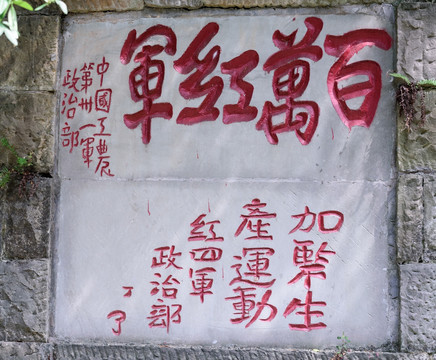 百萬紅軍
中國工農
第卅一軍
政治部
加緊生
產運動
紅四軍
政治部